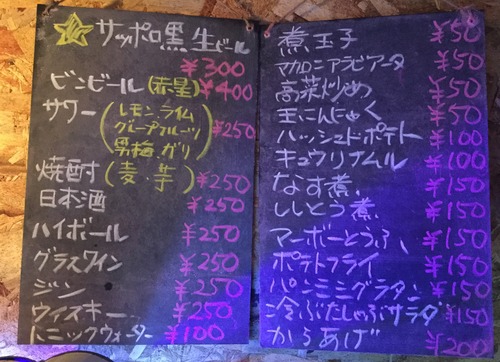 サッポロ黒 生ビール
¥300
ビンビール(赤星)¥400
サワー(レモン・ライム
グレープフルーツ ¥250
男梅・ガリ)
焼酎(麦・芋)¥250
日本酒 ¥250
ハイボール ¥250
グラスワイン ¥250
ジン ¥250
ウィスキー ¥250
トニックウォーター ¥100
煮玉子 ¥50
マカロニアラビアータ ¥50
高菜炒め ¥50
玉こんにゃく ¥50
ハッシュドポテト ¥100
キュウリナムル ¥100
なす煮、¥150
ししとう煮、¥150
マーボーとうふ、¥150
ポテトフライ ¥150
パンミミグラタン ¥150
冷ぶたしゃぶサラダ ¥150
からあげ ¥200